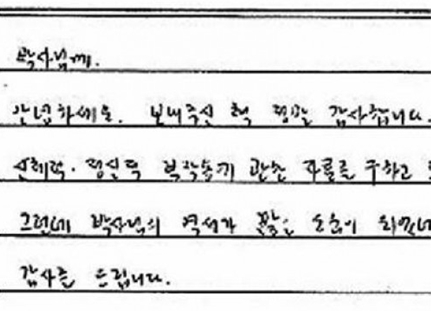 박사님께.
안녕하세요. 보내주신 책 정말 감사합니다.
신체적·정신적 부작용기 관한 자료를 구하고
그런데 박사님의 역서가 많은 도움이 되었네
감사를 드립니다.